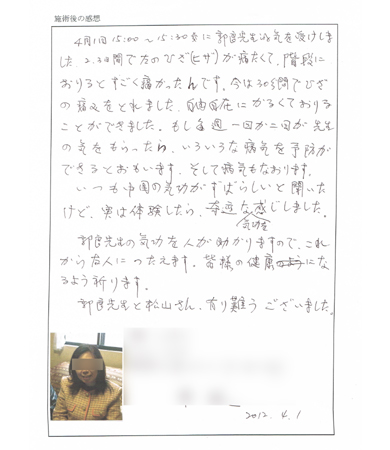 施術後の感想
4月1日15:00〜15:30まに郭良先生の気を受けしま
した。2.3日間で方のひざ(ヒザ)が痛たくて、階段に
おりるとすごく痛かったんです。今は30分間でひざ
の痛みをとれました。自由自在にがるくており
ことができました。もし每週一回か二回が先生
の気をもらったら、いろいろな病気を予防が
できるとおもいます。そして病気もなおります。
いつも中国の気功がすばらしいと聞いた
けど、実は体験したら、奇迹な感じしました。
気功を
郭良先生の気功を人が助かりますので、これ
から友人につたえます。皆様の健康になる
よう祈ります。
郭良先生と松山さん、有り難うございました。
2012. 4. 1